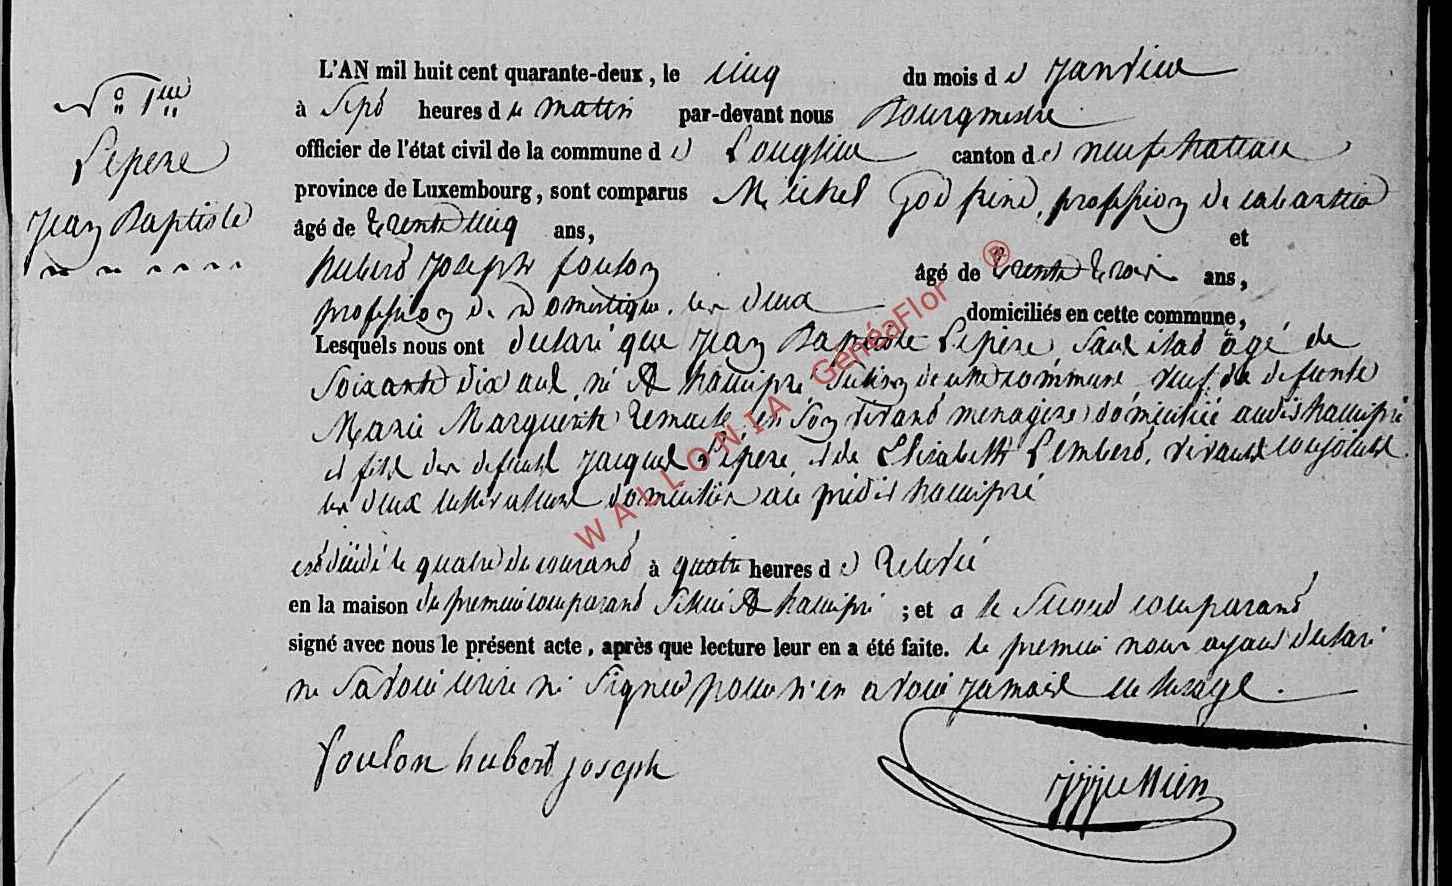 N° 1er
Lepere
Jean Baptiste
L'AN mil huit cent quarante-deux, le cinq du mois de Janvier
à Sept heures du matin par-devant nous Bourgmestre
officier de l'état civil de la commune de Longlier canton de neufchateau
province de Luxembourg, sont comparus Michel Godfrind, profession de cabartier
âgé de trente cinq ans,
et
hubert Joseph foulon âgé de trente trois ans,
profession de domestique. les deux domiciliés en cette commune,
Lesquels nous ont declaré que Jean Baptiste Lepere, Sans état âgé de
Soixante dix ans, né à hamipré Section de cette commune veuf de defunte
Marie Marguerite Remacle, en Son vivant menagere domiciliée audit hamipré
et fils des defunts Jacques Lepere, et de Elisabeth Lambert, vivants conjoints
les deux cultivateurs domiciliés au prédit hamipré
est décédé le quatre du courant à quatre heures de Relevée
en la maison du premier comparant Située à hamipré ; et a le Second comparant
signé avec nous le présent acte, après que lecture leur en a été faite. le premier nous ayant declaré
ne Savoir écrire ni Signer pour n'en avoir Jamais eu lusage.
foulon hubert joseph
WALLONIA GenéaFlor ®